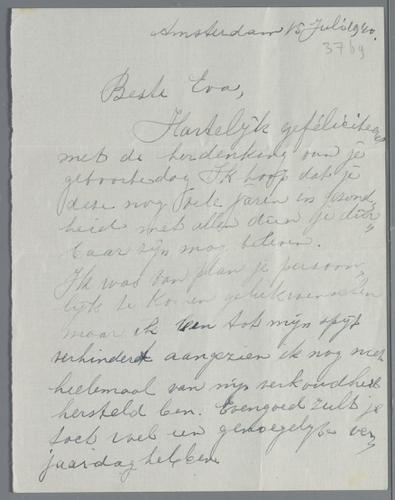 Amsterdam 15 Juli 1940.
37 b9
Beste Eva,
Hartelijk gefeliciteerd
met de herdenking van je
geboortedag Ik hoop dat je
dese nog vele jaren in gesond,,
heid met allen dien je dier,,
baar zijn mag beleven.
Ik was van plan je persoon,,
lijk te komen
maar ik ben tot mijn spijt
verhinderd aangezien ik nog niet
heelemaal van mijn verkoudheid
hersteld ben. Evengoed zult je
toch wel een genoegelijk ver,,
jaardag hebben